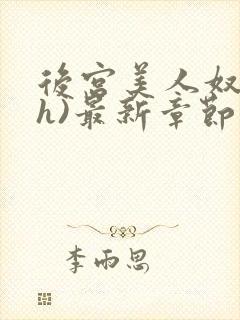 後宫美人奴
h)最新章節
李雨思